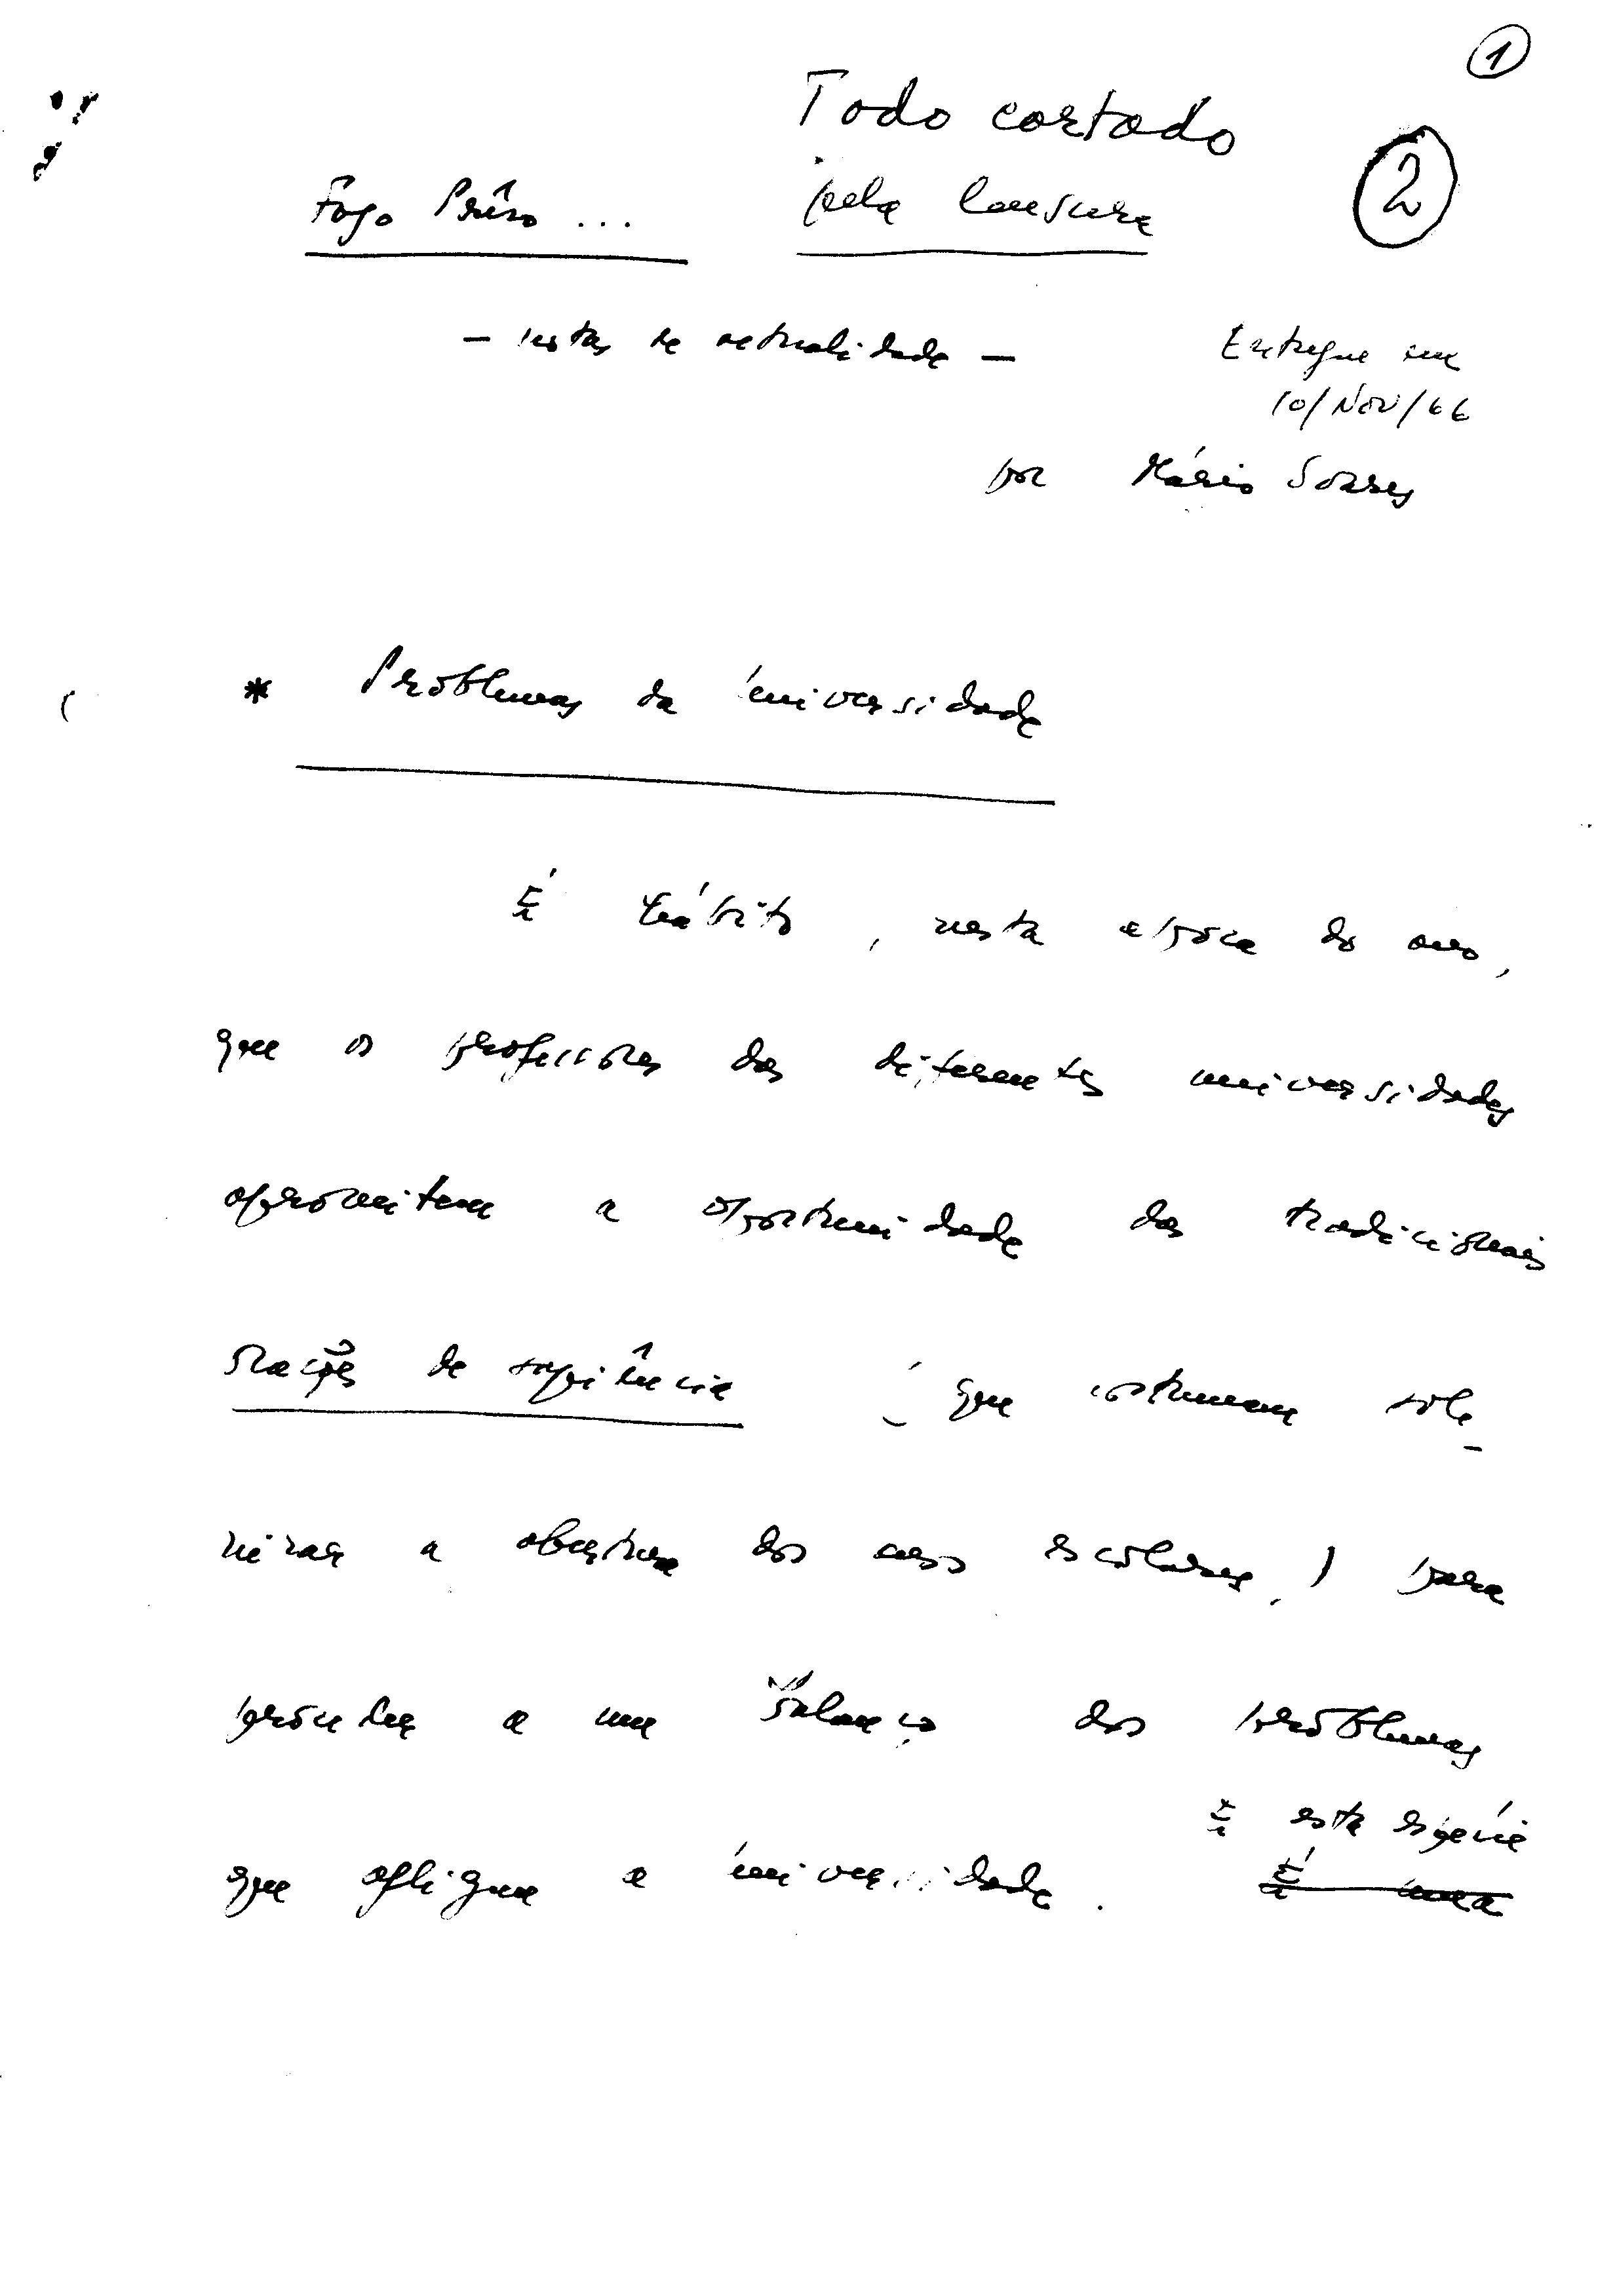 1
Todo cortado
pela Censura
2
Fogo Prêso ...
- notas de actualidade -
Entregue em
10/Nov/66
por Mário Soares
* Problemas da universidade
É hábito, nesta época do ano,
que os professores das diferentes universidades
aproveitem a oportunidade das tradicionais
orações de sapiência (que costumam sole-
nizar a abertura dos anos escolares,) para
proceder a um balanço dos problemas
É esta espécie
que afligem a universidade. É uma